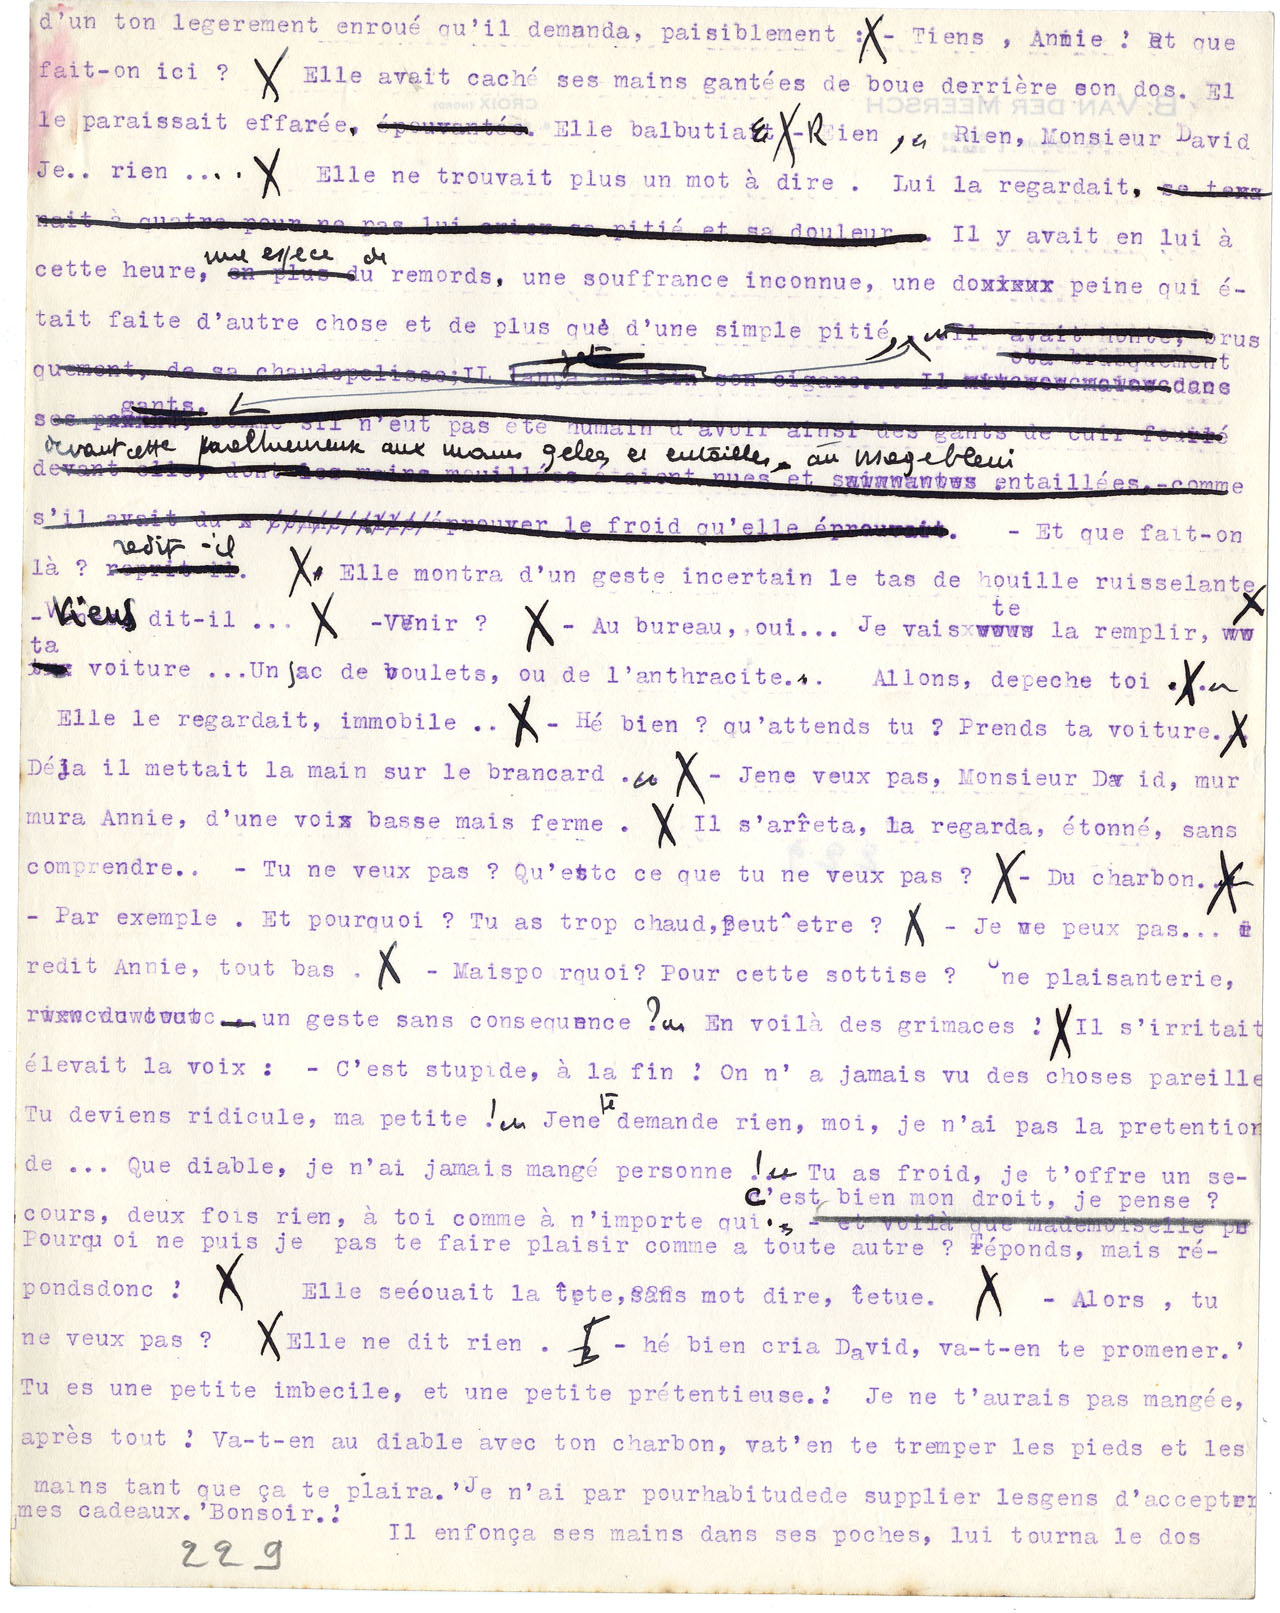 d'un ton legerement enroué qu'il demanda, paisiblement :X- Tiens , Annie ! Et que
fait-on ici ? X Elle avait caché ses mains gantées de boue derrière son dos. El
le paraissait effarée, épouvantée. Elle balbutia X-Rien , Rien, Monsieur David
Je.. rien .... X Elle ne trouvait plus un mot à dire . Lui la regardait, se tena
nait à quatre pour ne pas lui crier sa pitié et sa douleur . Il y avait en lui à
une espece de
cette heure, en plus du remords, une souffrance inconnue, une peine qui é-
tait faite d'autre chose et de plus que d'une simple pitié, Il avait honte, brus
quement, de sa chaude pelisse; IL lança au loin son cigare... Il dans
gants.
ses comme s'il n'eut pas été humain d'avoir ainsi des gants de cuir fourré
devant cette aux mains gelées et entaillées, au visage bleui
devant elle, dont les mains mouillées étaient nues et entaillées.-comme
s'il avait du éprouver le froid qu'elle éprouvait. - Et que fait-on
redit-il
là ? reprit-il. X Elle montra d'un geste incertain le tas de houille ruisselante
X
-Viens dit-il ... X -Venir ? X - Au bureau, oui... Je vais te la remplir,
ta
voiture ...Un sac de boulets, ou de l'anthracite... Allons, depeche toi .X.
Elle le regardait, immobile .. X - Hé bien ? qu'attends tu ? Prends ta voiture.X
Déja il mettait la main sur le brancard . X - Jene veux pas, Monsieur Da id, mur
mura Annie, d'une voix basse mais ferme . X Il s'arrêta, la regarda, étonné, sans
comprendre.. - Tu ne veux pas ? Qu'estc ce que tu ne veux pas ? X- Du charbon..X
- Par exemple . Et pourquoi ? Tu as trop chaud,peut^etre ? X - Je ne peux pas...
redit Annie, tout bas . X - Maispo rquoi? Pour cette sottise ? Une plaisanterie,
un geste sans consequence ? En voilà des grimaces ! X Il s'irritait
élevait la voix : - C'est stupide, à la fin ! On n' a jamais vu des choses pareille
Tu deviens ridicule, ma petite ! Jene te demande rien, moi, je n'ai pas la pretention
de ... Que diable, je n'ai jamais mangé personne ! Tu as froid, je t'offre un se-
C'est bien mon droit, je pense ?
cours, deux fois rien, à toi comme à n'importe qui. - et voilà que mademoiselle
Pourqu oi ne puis je pas te faire plaisir comme a toute autre ? Réponds, mais ré-
pondsdonc ! X Elle secouait la tete,sans mot dire, tetue. X - Alors , tu
ne veux pas ? X Elle ne dit rien . - hé bien cria David, va-t-en te promener.'
Tu es une petite imbecile, et une petite prétentieuse.! Je ne t'aurais pas mangée,
après tout ! Va-t-en au diable avec ton charbon, vat'en te tremper les pieds et les
mains tant que ça te plaira.'Je n'ai par pourhabitudede supplier lesgens d'accepter
mes cadeaux.'Bonsoir.!
Il enfonça ses mains dans ses poches, lui tourna le dos
229